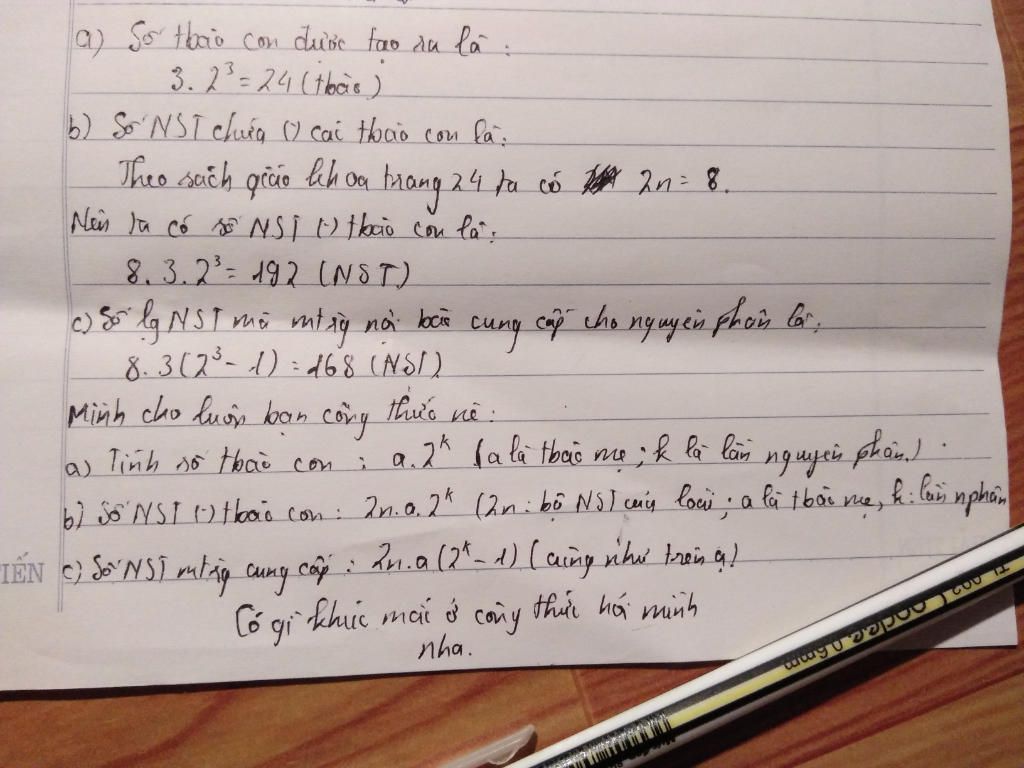 a) Số tbào con được tạo ra là:
3. 2³ = 24 (tbào)
b) Số NST chứa (-) các tbào con là:
Theo sách giáo khoa trang 24 ta có 2n = 8.
Nên ta có số NST (-) tbào con là:
8. 3. 2³ = 192 (NST)
c) Số lg NST mà mtrg nội bào cung cấp cho nguyên phân là:
8. 3 (2³ - 1) = 168 (NST)
Mình cho luôn bạn công thức nè:
a) Tính số tbào con : a. 2ᵏ (a là tbào mẹ ; k là lần nguyên phân.)
b) Số NST (-) tbào con : 2n. a. 2ᵏ (2n : bộ NST của loài ; a là tbào mẹ, k : lần nphân
TIẾN
c) Số NST mtrg cung cấp : 2n. a (2ᵏ - 1) (cũng như trên ạ)
Có gì khúc mắc ở công thức hỏi mình
nha.
0.6mm